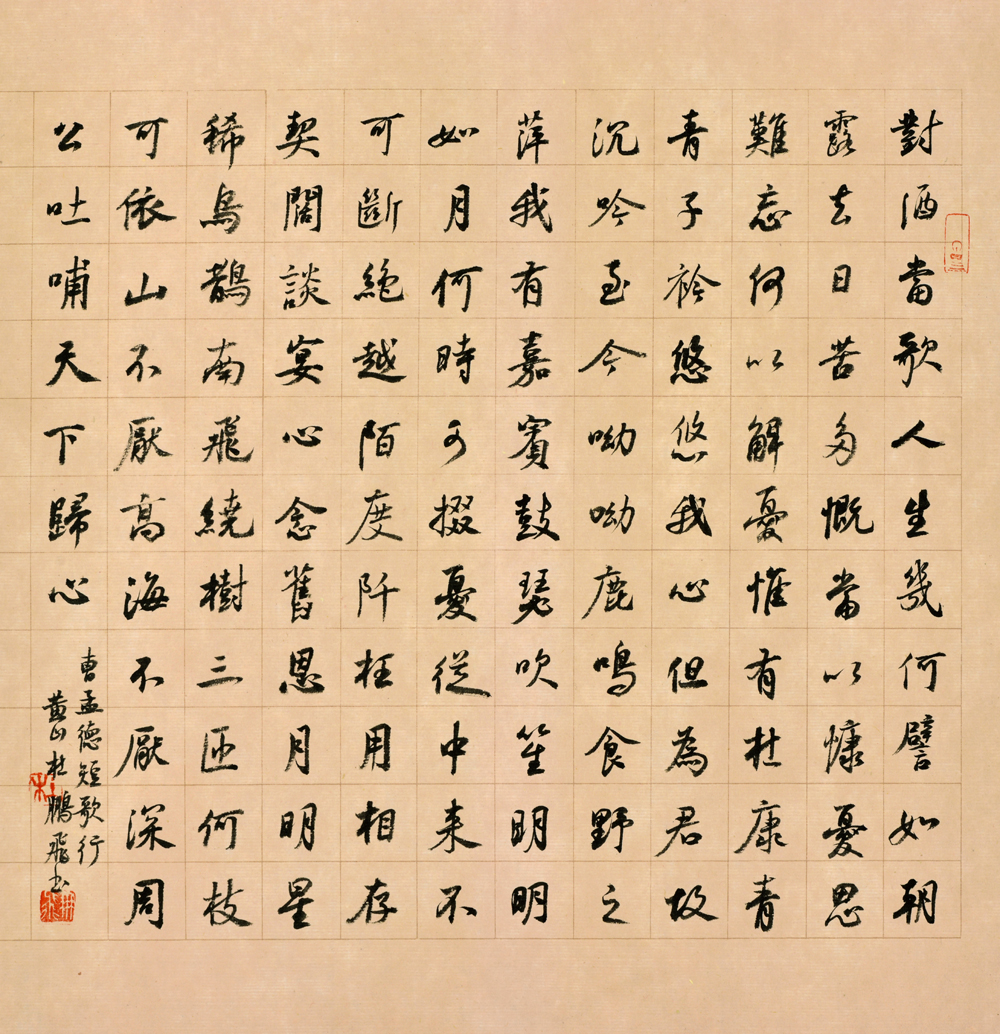 對酒當歌人生幾何譬如朝
露去日苦多慨當以慷憂思
難忘何以解憂惟有杜康青
青子衿悠悠我心但為君故
沉吟至今呦呦鹿鳴食野之
萍我有嘉賓鼓瑟吹笙明明
如月何時可掇憂從中来不
可斷絕越陌度阡枉用相存
契闊談宴心念舊恩月明星
稀烏鵲南飛繞樹三匝何枝
可依山不厭高海不厭深周
公吐哺天下歸心
曹孟德短歌行
黄山杜鵬飛书